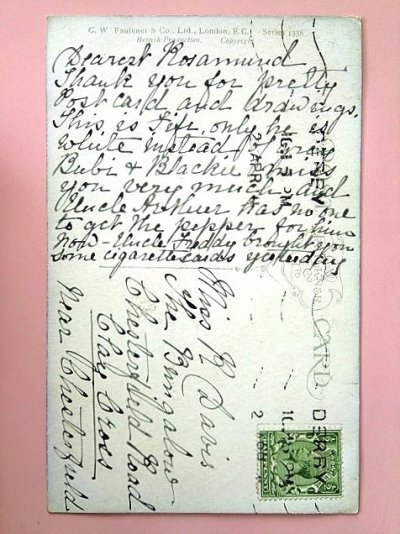 C. W. Faulkner & Co., Ltd., London. E.C.1 Series 1338
British Production. Copyright
Dearest Rosamund
Thank you for pretty
Post card and drawings.
This is Tiff, only he is
white instead of
Bubi & Blackie
you very much and
Uncle Arthur has no one
to get the pepper for him
now - Uncle Freddy brought you
some cigarette cards yesterday
CARD
Miss R Davis
The Bungalow
Chesterfield Road
Clay Cross
Near Chesterfield
DERBY
2 APR